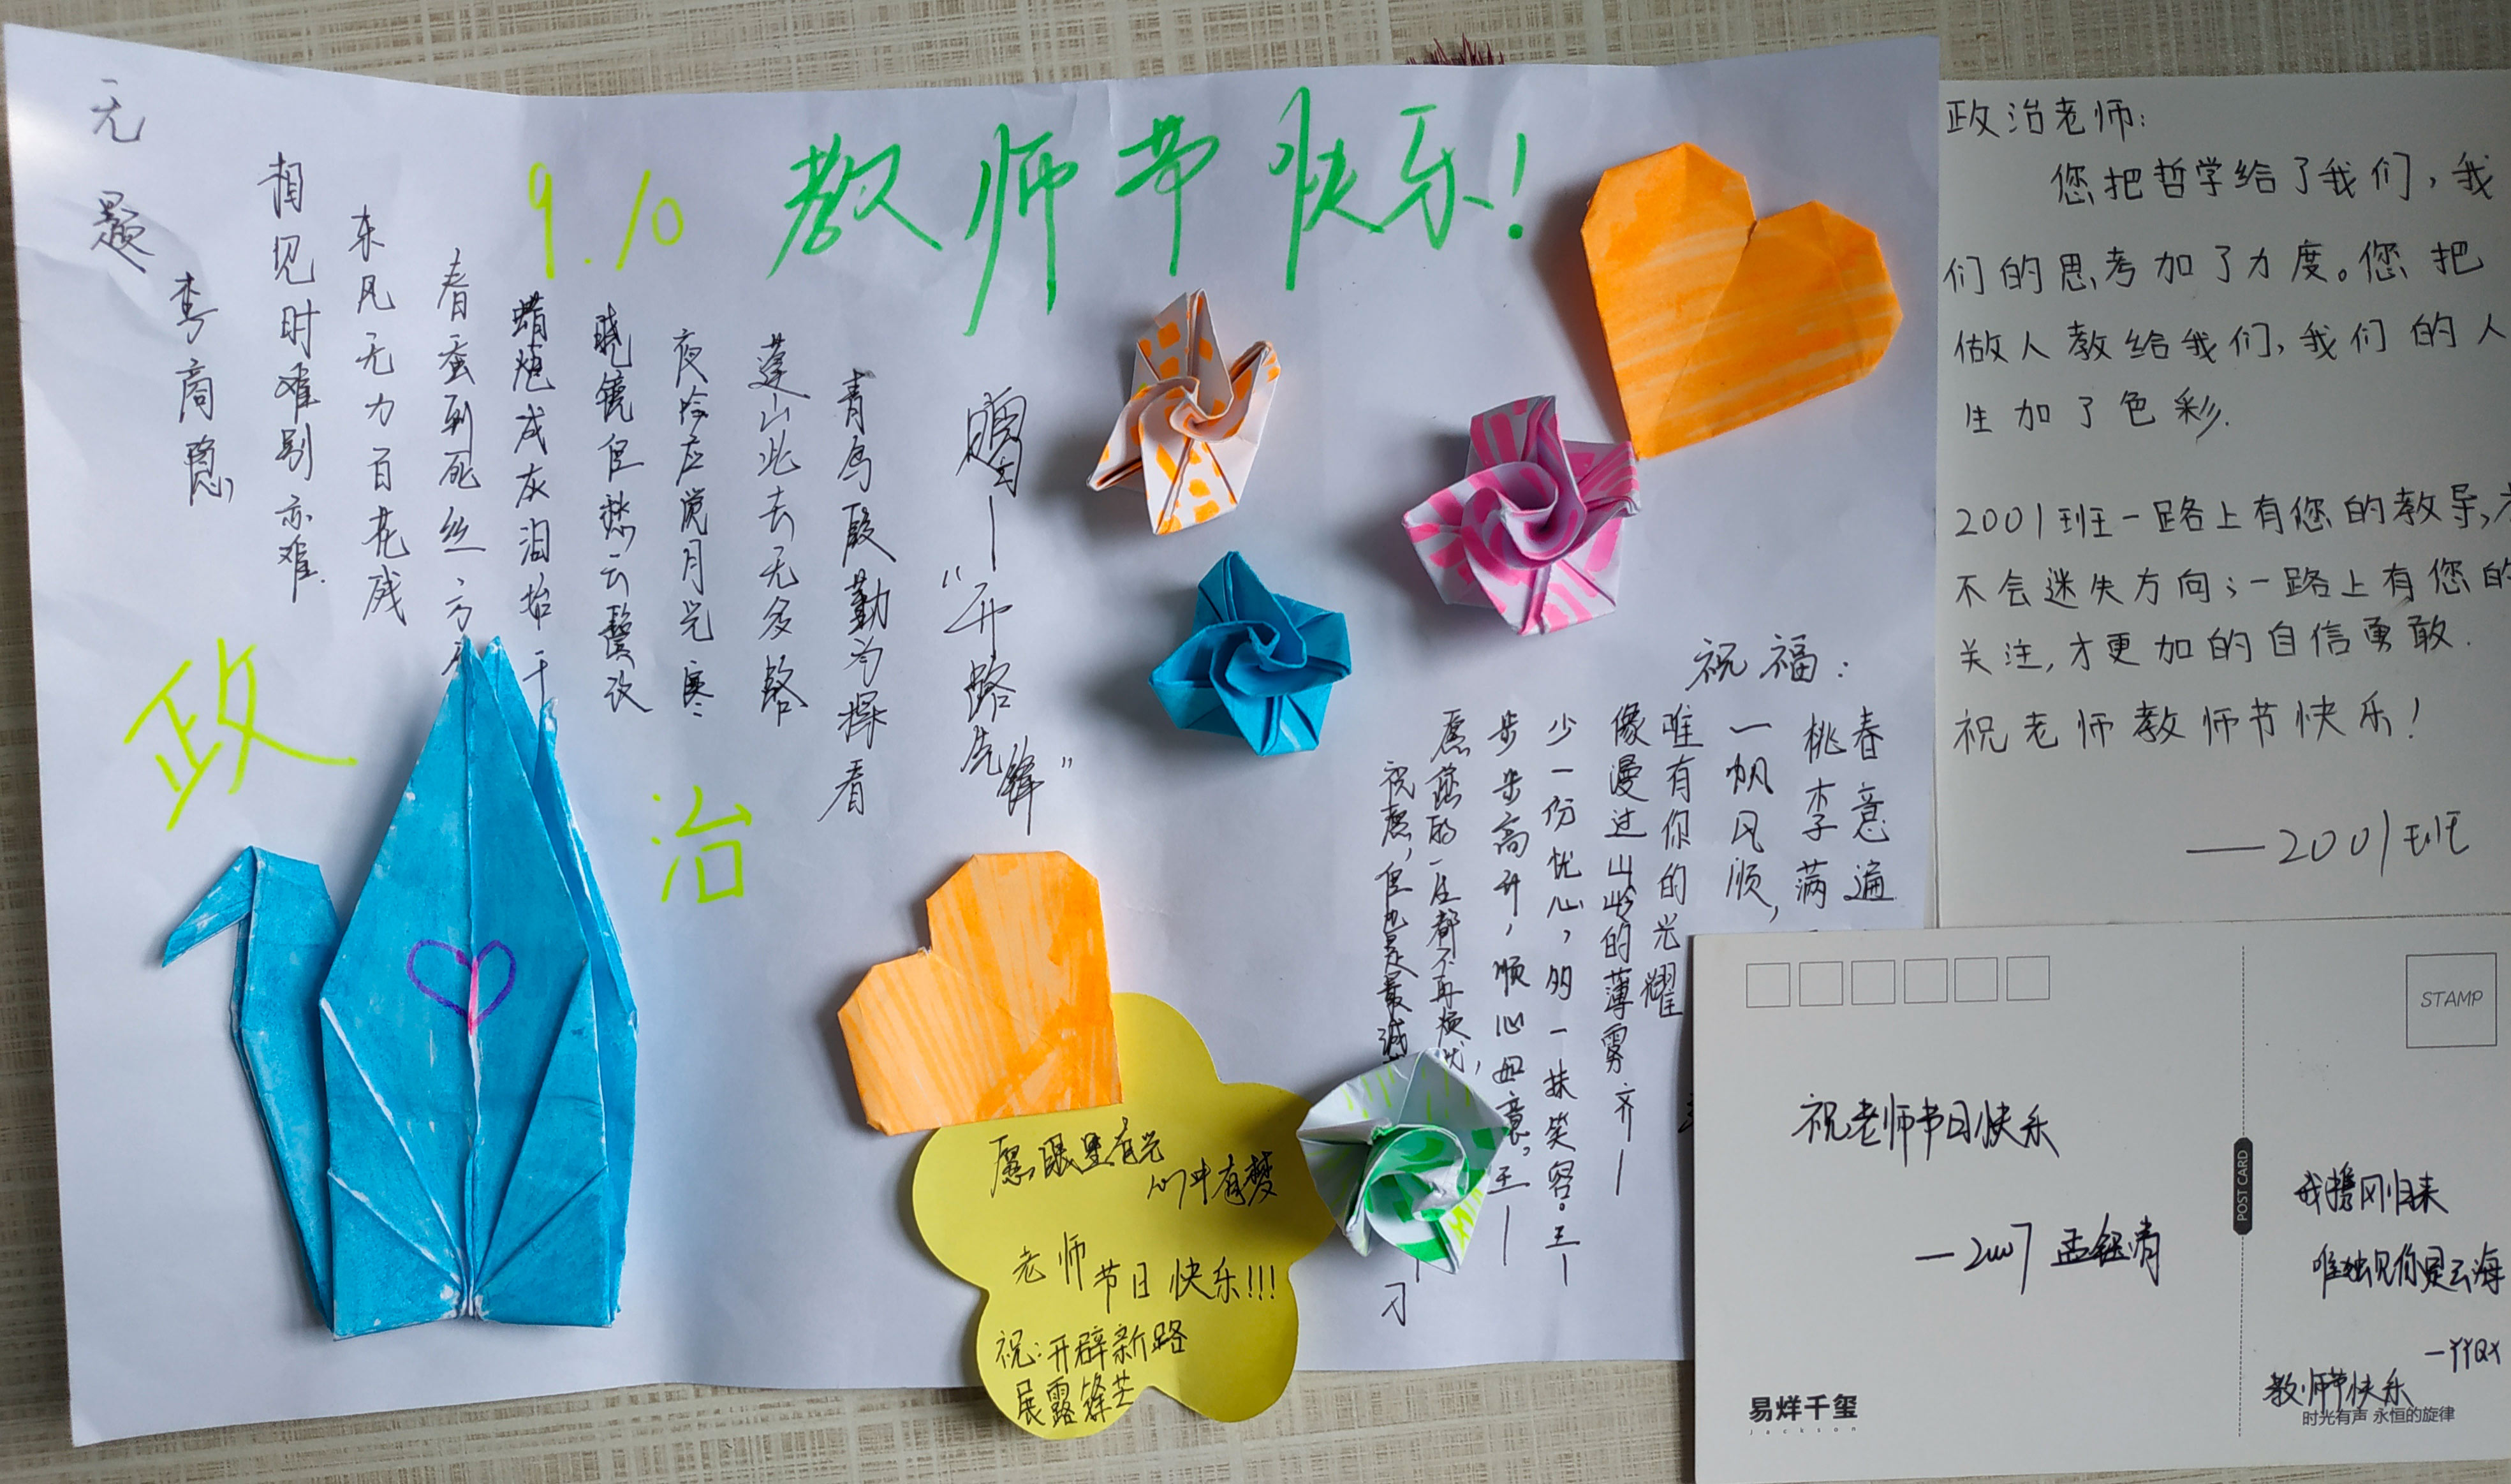 9.10 教师节快乐!
无题
李商隐
相见时难别亦难.
东风无力百花残
春蚕到死丝方
蜡炬成灰泪始干
晓镜但愁云鬓改
夜吟应觉月光寒
蓬山此去无多路
青鸟殷勤为探看
赠——
“开路先锋”
政治
祝福:
春意遍
桃李满
一帆风顺,
唯有你的光耀
像漫过山岭的薄雾
少一份忧心,多一抹笑容。王
步步高升,顺心如意。王
愿您的一应都不再烦忧,
祝愿,但也是最诚
刁
愿眼里有光
心中有梦
老师
节日快乐!!!
祝:开辟新路
展露锋芒
政治老师:
您把哲学给了我们,我
们的思考加了力度。您把
做人教给我们,我们的人
生加了色彩.
2001班一路上有您的教导,才
不会迷失方向;一路上有您的
关注,才更加的自信勇敢.
祝老师教师节快乐!
——2001班
STAMP
POST CARD
祝老师节日快乐
—2007 孟钰清
我携风归来
唯独见你是云海
—YYQX
教师节快乐
易烊千玺
jackson
时光有声 永恒的旋律